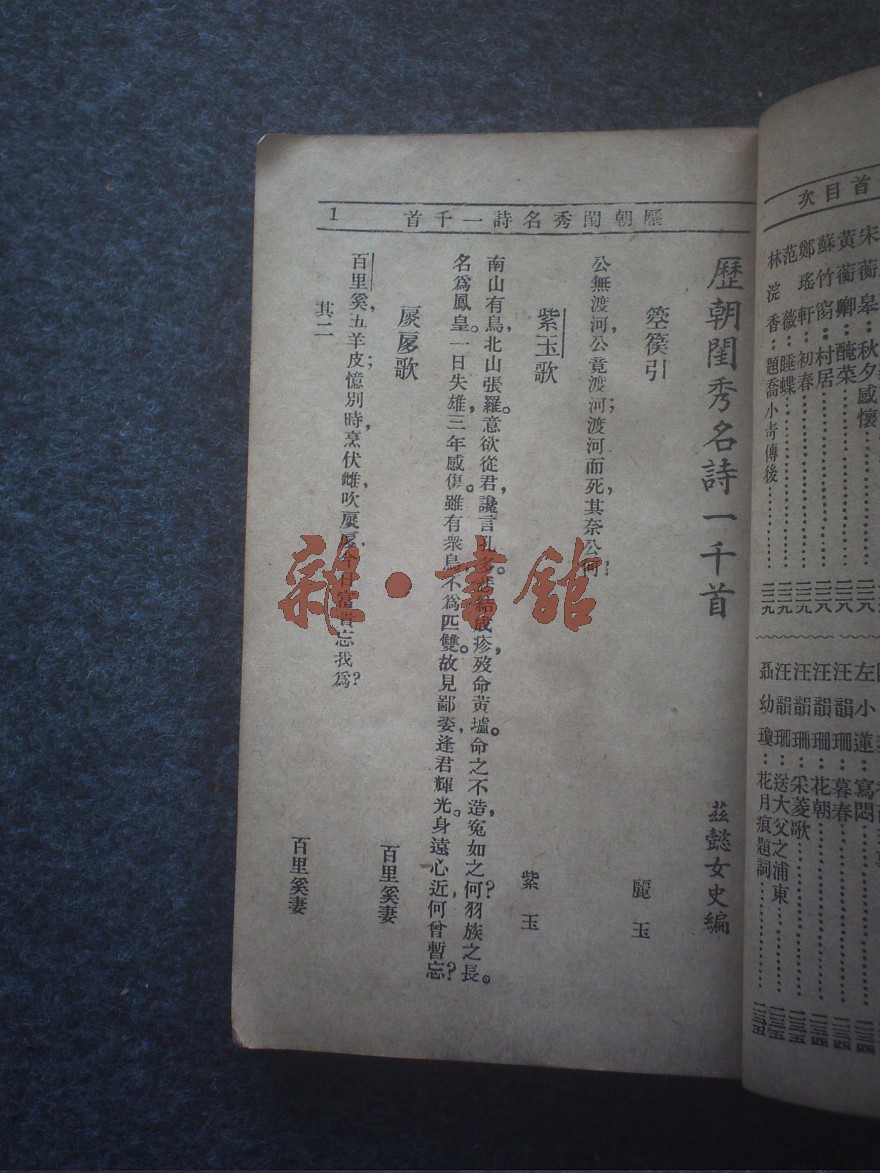 首目次
宋蘅皋：秋夕感懷
黃蘅卿：醃菜
蘇竹窗：村居
鄭瑤軒：初春
范薇：睡蝶
林浣香：題喬小青傳後
左小蓮：寫悶
汪韻珊：暮春
汪韻珊：花朝
汪韻珊：采菱歌
汪韻珊：送大父之浦東
聶幼瓊：花月痕題詞
歷朝閨秀名詩一千首 1
歷朝閨秀名詩一千首
茲懿女史編
箜篌引 麗玉
公無渡河，公竟渡河；渡河而死，其奈公何？
紫玉歌 紫玉
南山有鳥，北山張羅。意欲從君，讒言孔多。悲結成疹，歿命黃壚。命之不造，冤如之何？羽族之長。
名爲鳳皇。一日失雄，三年感傷。雖有衆鳥，不爲匹雙。故見鄙姿，逢君輝光。身遠心近，何曾暫忘？
扊扅歌 百里奚妻
百里奚，五羊皮；憶別時，烹伏雌，吹扊扅，今日富貴忘我爲？
其二 百里奚妻
雜·書館